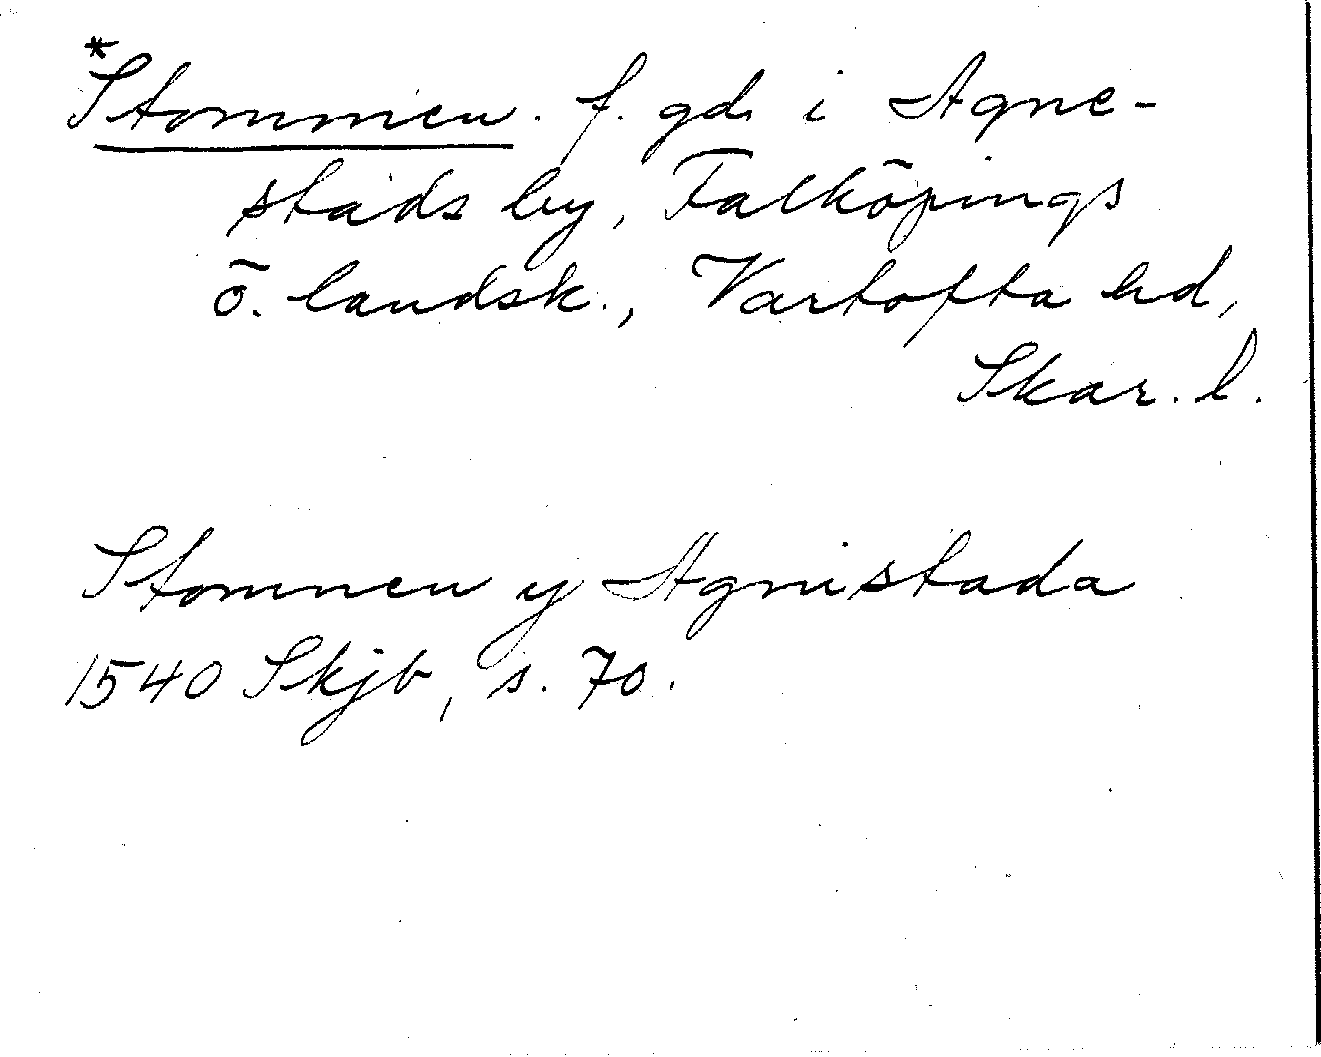 *Stommen. f. gd. i Agne-
stads by, Falköpings
ö. landsk., Vartofta hd,
Skar. l.
Stommen y Agnistada
1540 Skjb, s. 70.